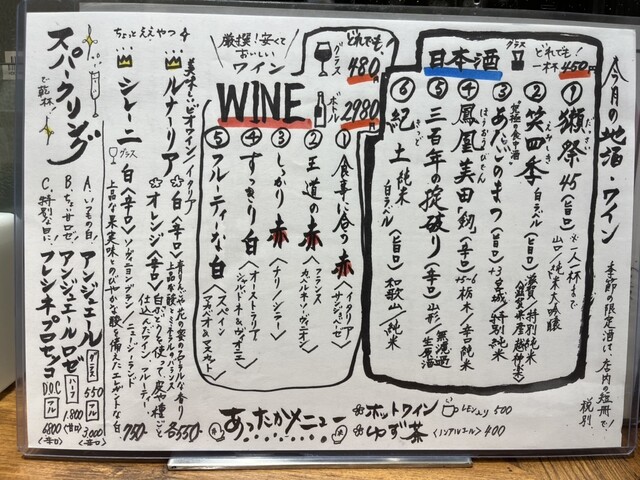 今月の地酒・ワイン
季節の限定酒は、店内の短冊で！
税別
日本酒
グラス
どれでも！
一杯450円
① 獺祭45〈旨口〉
だっさい
※一人一杯まで
山口/純米大吟醸
② 笑四季
えみしき
白ラベル〈旨口〉
滋賀/特別純米
③ あたごのまつ〈辛口〉
究極の食中酒
+3 宮城/特別純米
④ 鳳凰美田 剱〈辛口〉
ほうおうびでん
+5~6 栃木/辛口純米
⑤ 三百年の掟破り〈辛口〉
山形 無濾過生原酒
⑥ 紀土 純米
きっど
白ラベル〈旨口〉
和歌山/純米
厳選！安くて
おいしい
ワイン
グラス
どれでも！
480円
WINE
ボトル
2980円
① 食事に合う赤
〈イタリア/サンジョベーゼ〉
② 王道の赤
〈フランス/カベルネ・ソーヴィニオン〉
③ しっかり赤
〈チリ/シラー〉
④ すっきり白
〈オーストラリア/シャルドネ&ヴィオニエ〉
⑤ フルーティーな白
〈スペイン/マカベオ&マスカット〉
ちょっとええやつ
美味しいビオワイン/イタリア
ルナーリア
白〈辛口〉
オレンジ〈辛口〉
各550
シレーニ
グラス
白〈辛口〉
ソーヴィニヨン・ブラン/ニュージーランド
上品な果実味とのびやかな酸を備えたエレガントな白
750
スパークリング
で乾杯
A. いつもの白！
アンジュエール
グラス 550
ボトル 3,000〈辛口〉
B. ちょーロゼ！
アンジュエールロゼ
ハーフ 1,800〈甘口〉
C. 特別な日に！
フレシネプロセッコ
D.O.C
ボトル 6800〈辛口〉
あったかメニュー
ホットワイン
レモン入り 500
ゆず茶
〈ノンアルコール〉 400